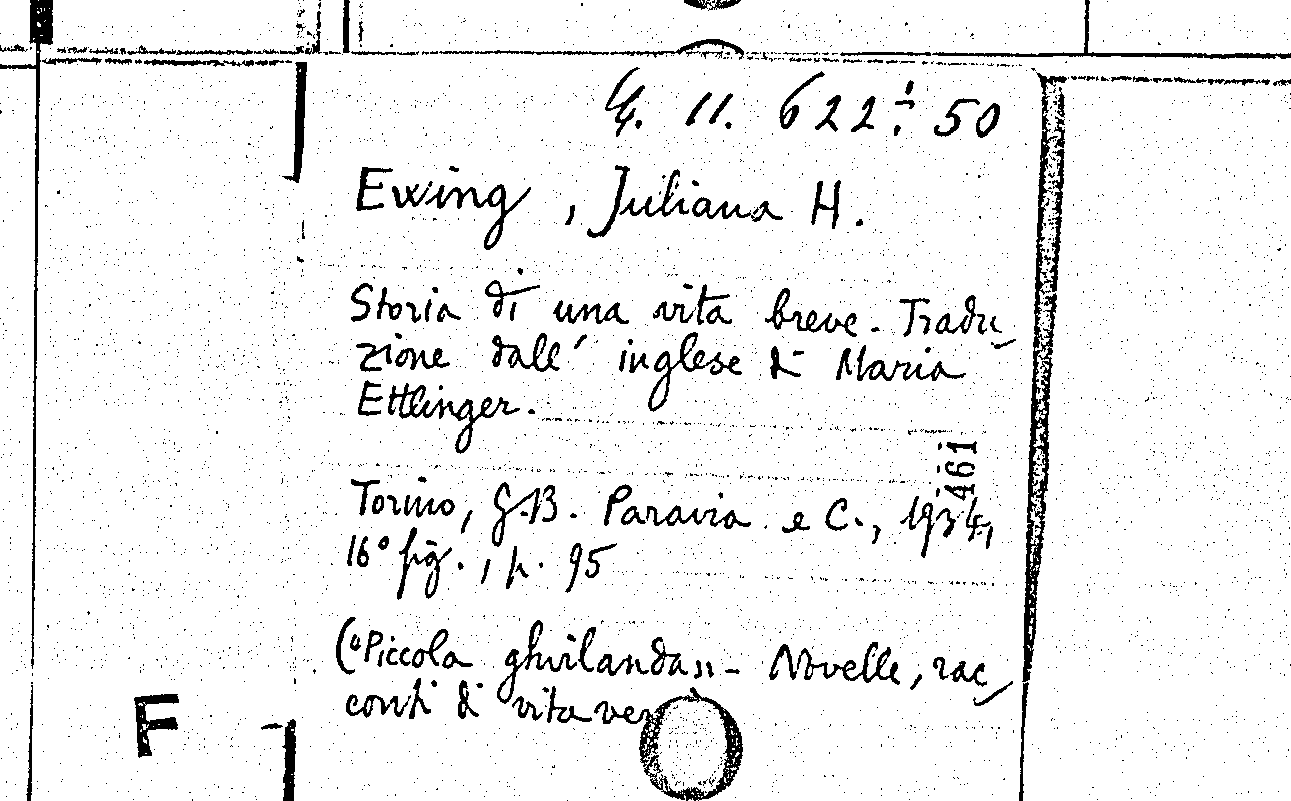 G. 11. 622÷50
Ewing, Juliana H.
Storia di una vita breve. Tradu
zione dall' inglese di Maria
Ettlinger.
461
Torino, G.B. Paravia e C., 1934,
16° fig., p. 95
("Piccola ghirlanda" - Novelle, rac
conti di vita
F